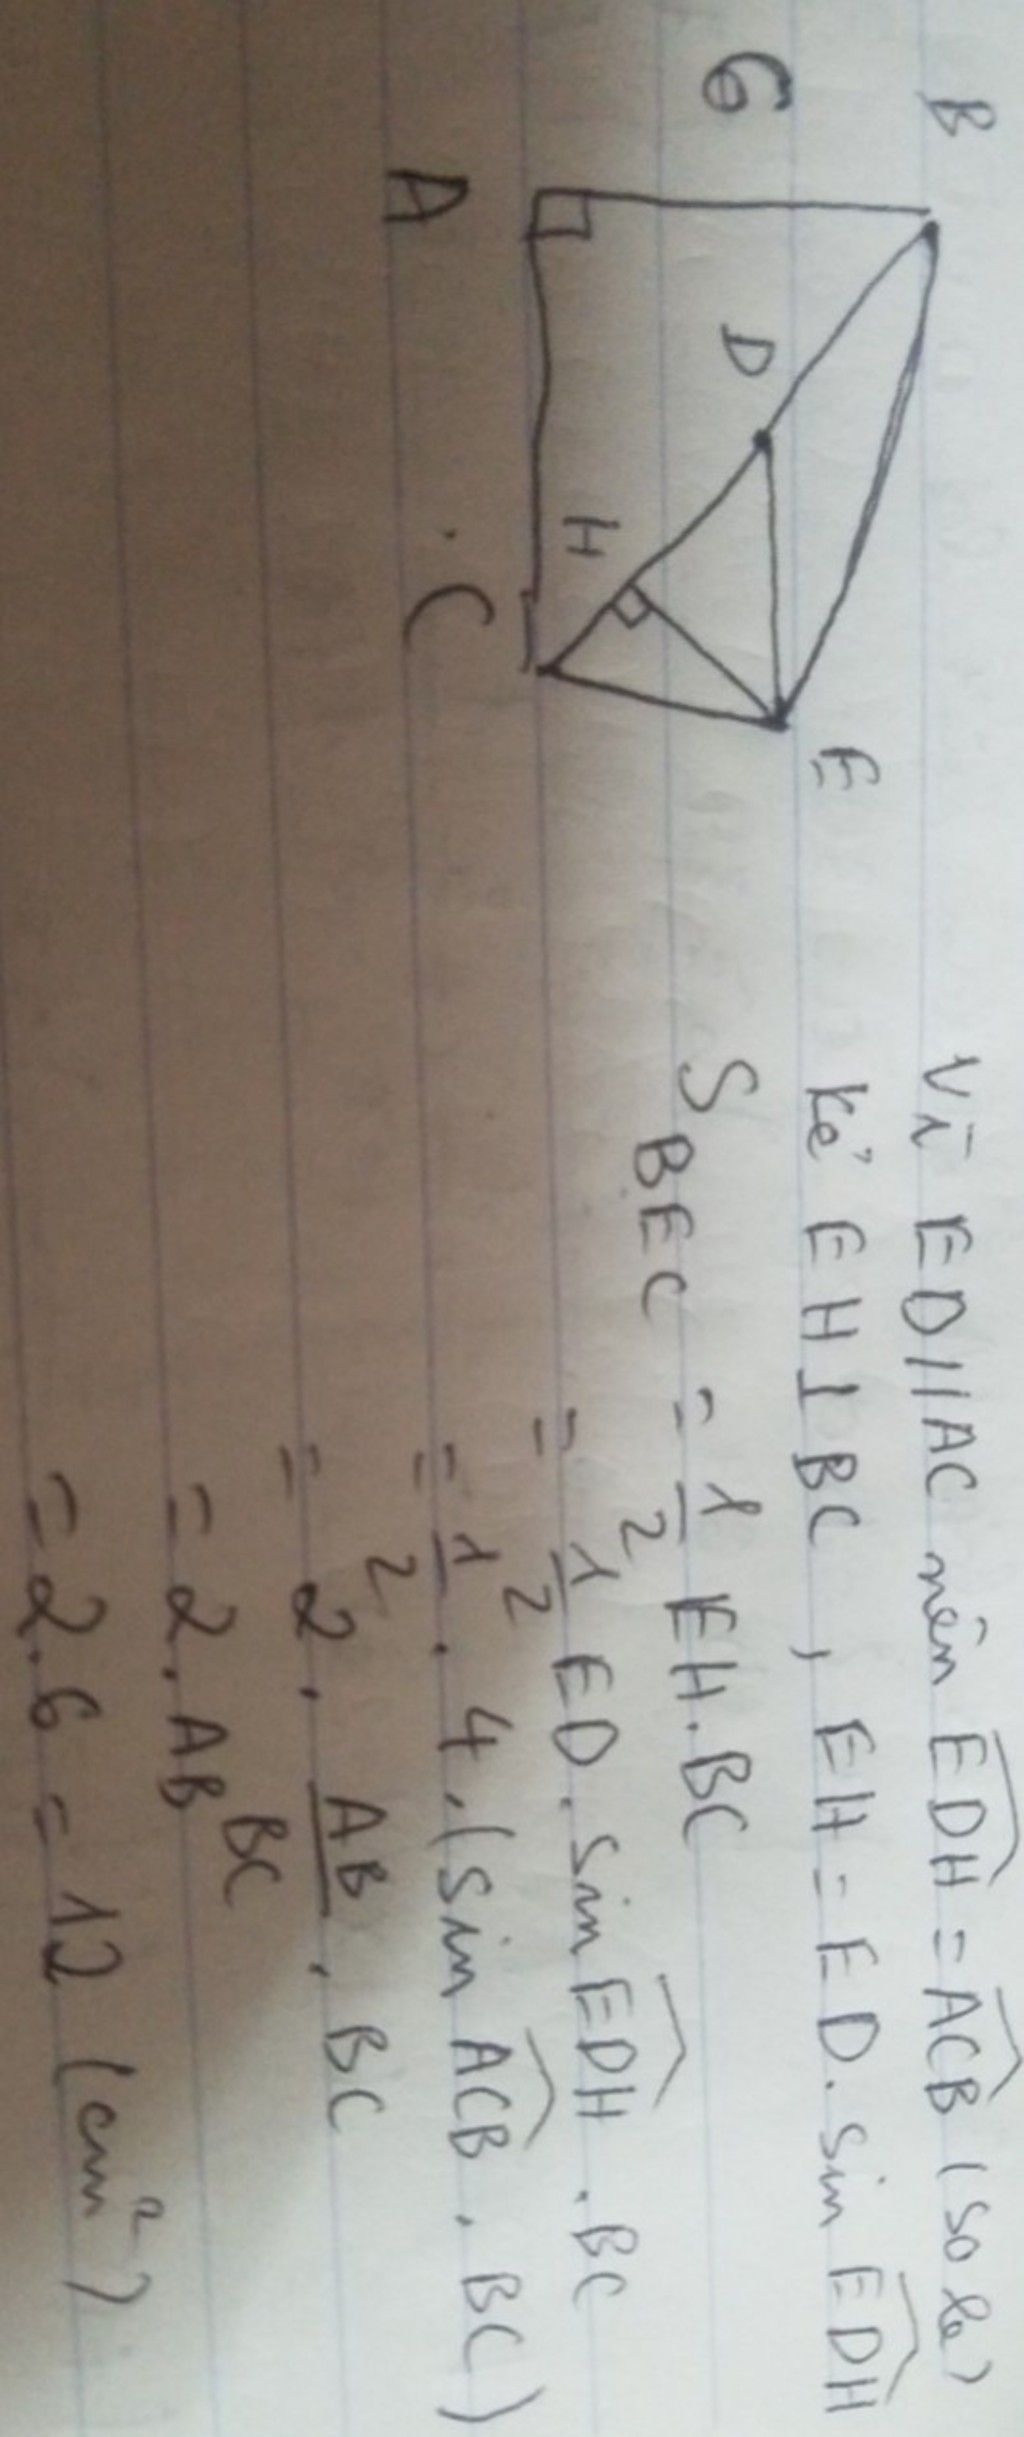 B
6
D
E
H
A
C
Vì ED//AC nên \widehat{EDH} = \widehat{ACB} (so le)
Kẻ EH⊥BC, EH = ED. Sin \widehat{EDH}
S_{BEC} = \frac{1}{2} EH.BC
= \frac{1}{2} ED. Sin \widehat{EDH} . BC
= \frac{1}{2} . 4. (Sin \widehat{ACB} . BC)
= 2. \frac{AB}{BC} . BC
= 2. AB
= 2.6 = 12 (cm²)